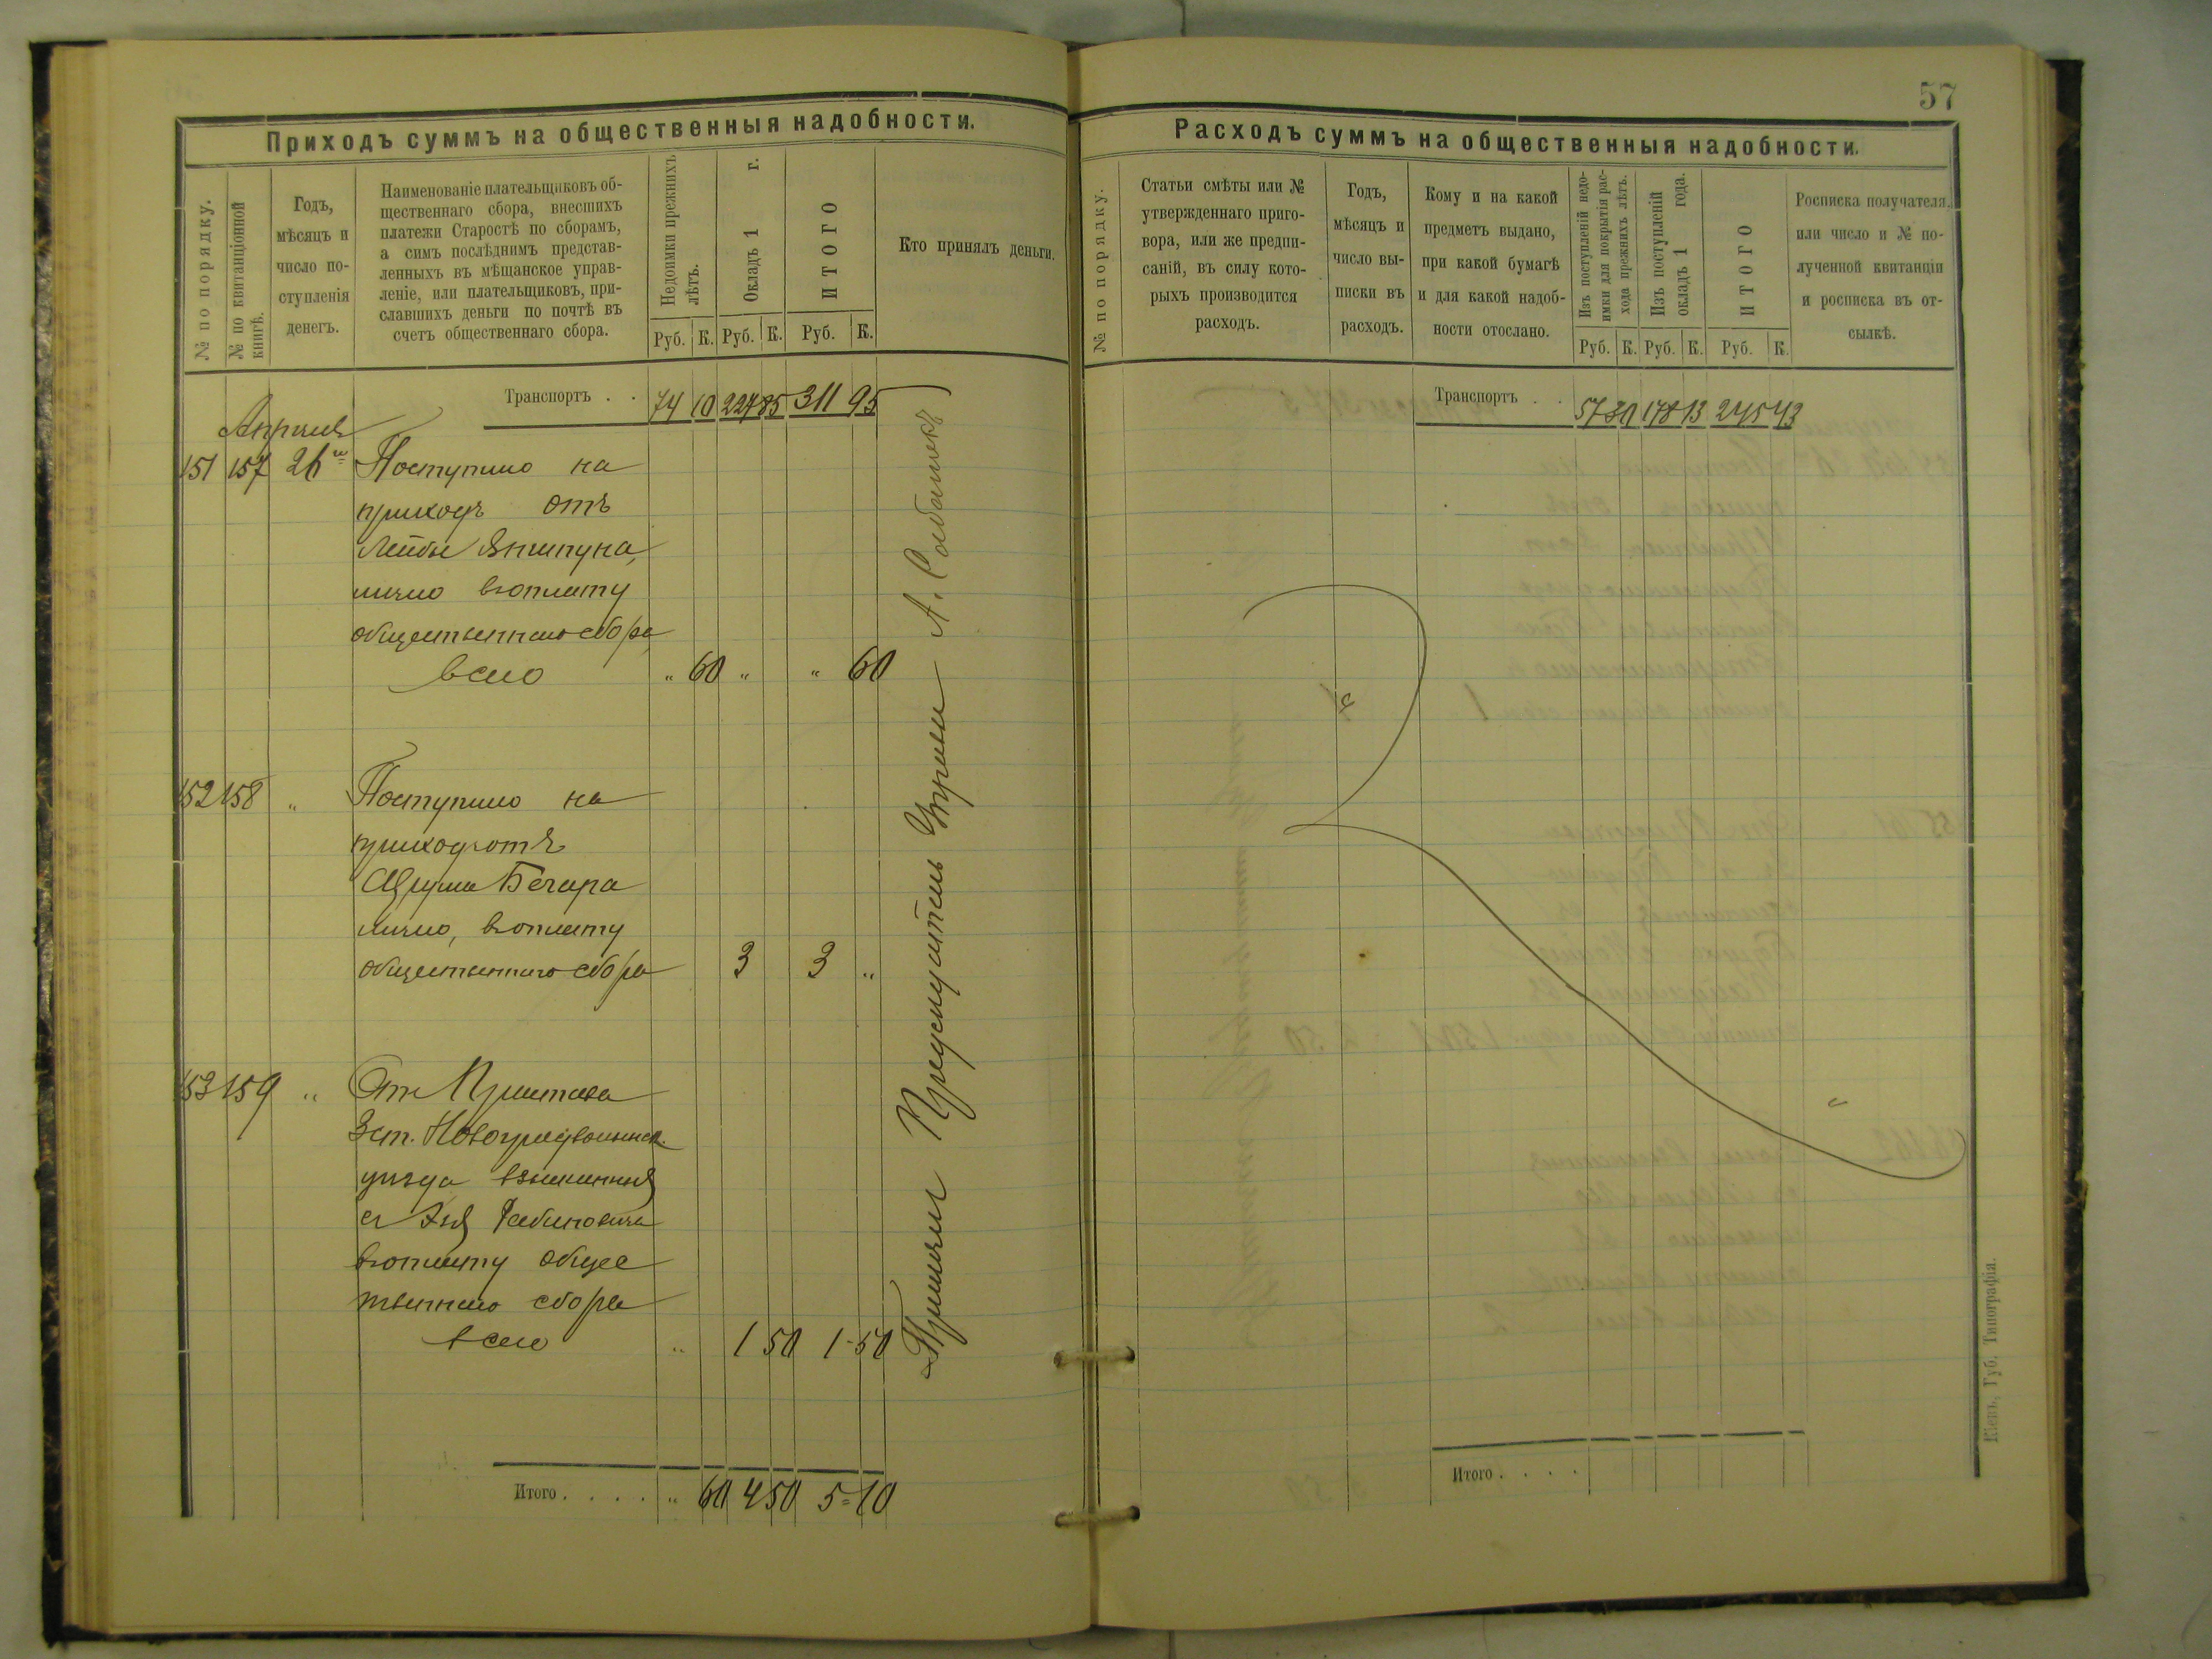 57
Приходъ суммъ на общественныя надобности.
№ по порядку.
№ по квитанціонной
книгѣ.
Годъ,
мѣсяцъ и
число по-
ступленія
денегъ.
Наименованіе плательщиковъ об-
щественнаго сбора, внесшихъ
платежи Старостѣ по сборамъ,
а симъ послѣднимъ представ-
ленныхъ въ мѣщанское управ-
леніе, или плательщиковъ, при-
славшихъ деньги по почтѣ въ
счетъ общественнаго сбора.
Недоимки прежнихъ
лѣтъ.
Окладъ 1 г.
ИТОГО
Кто принялъ деньги.
Руб. К. Руб. К. Руб. К.
Транспортъ . . 74 10 227 85 311 95
Апрѣля
151 157 26го Поступило на
приходъ отъ
Лейбы
лично въ уплату
общественнаго сбора,
всего " 60 " " 60
152 158 " Поступило на
приходъ отъ
Сруля Бегара
лично, въ уплату
общественнаго сбора 3 3 "
153 159 " Отъ Пристава
3 ст. Новоградволынск.
уѣзда взысканныя
съ Рабиновича
въ уплату общес
твеннаго сбора
всего " 1 50 1-50
Итого . . . . " 60 4 50 5=10
Принялъ Предсѣдатель Управы А.
Расходъ суммъ на общественныя надобности.
№ по порядку.
Статьи смѣты или №
утвержденнаго приго-
вора, или же предпи-
саній, въ силу кото-
рыхъ производится
расходъ.
Годъ,
мѣсяцъ и
число вы-
писки въ
расходъ.
Кому и на какой
предметъ выдано,
при какой бумагѣ
и для какой надоб-
ности отослано.
Изъ поступленій недо-
имки для покрытія рас-
хода прежнихъ лѣтъ.
Изъ поступленій
окладъ 1 года.
ИТОГО
Росписка получателя,
или число и № по-
лученной квитанціи
и росписка въ от-
сылкѣ.
Руб. К. Руб. К. Руб. К.
Транспортъ . . 178 13
Итого . . . .
Кіевъ, Губ. Типографія.